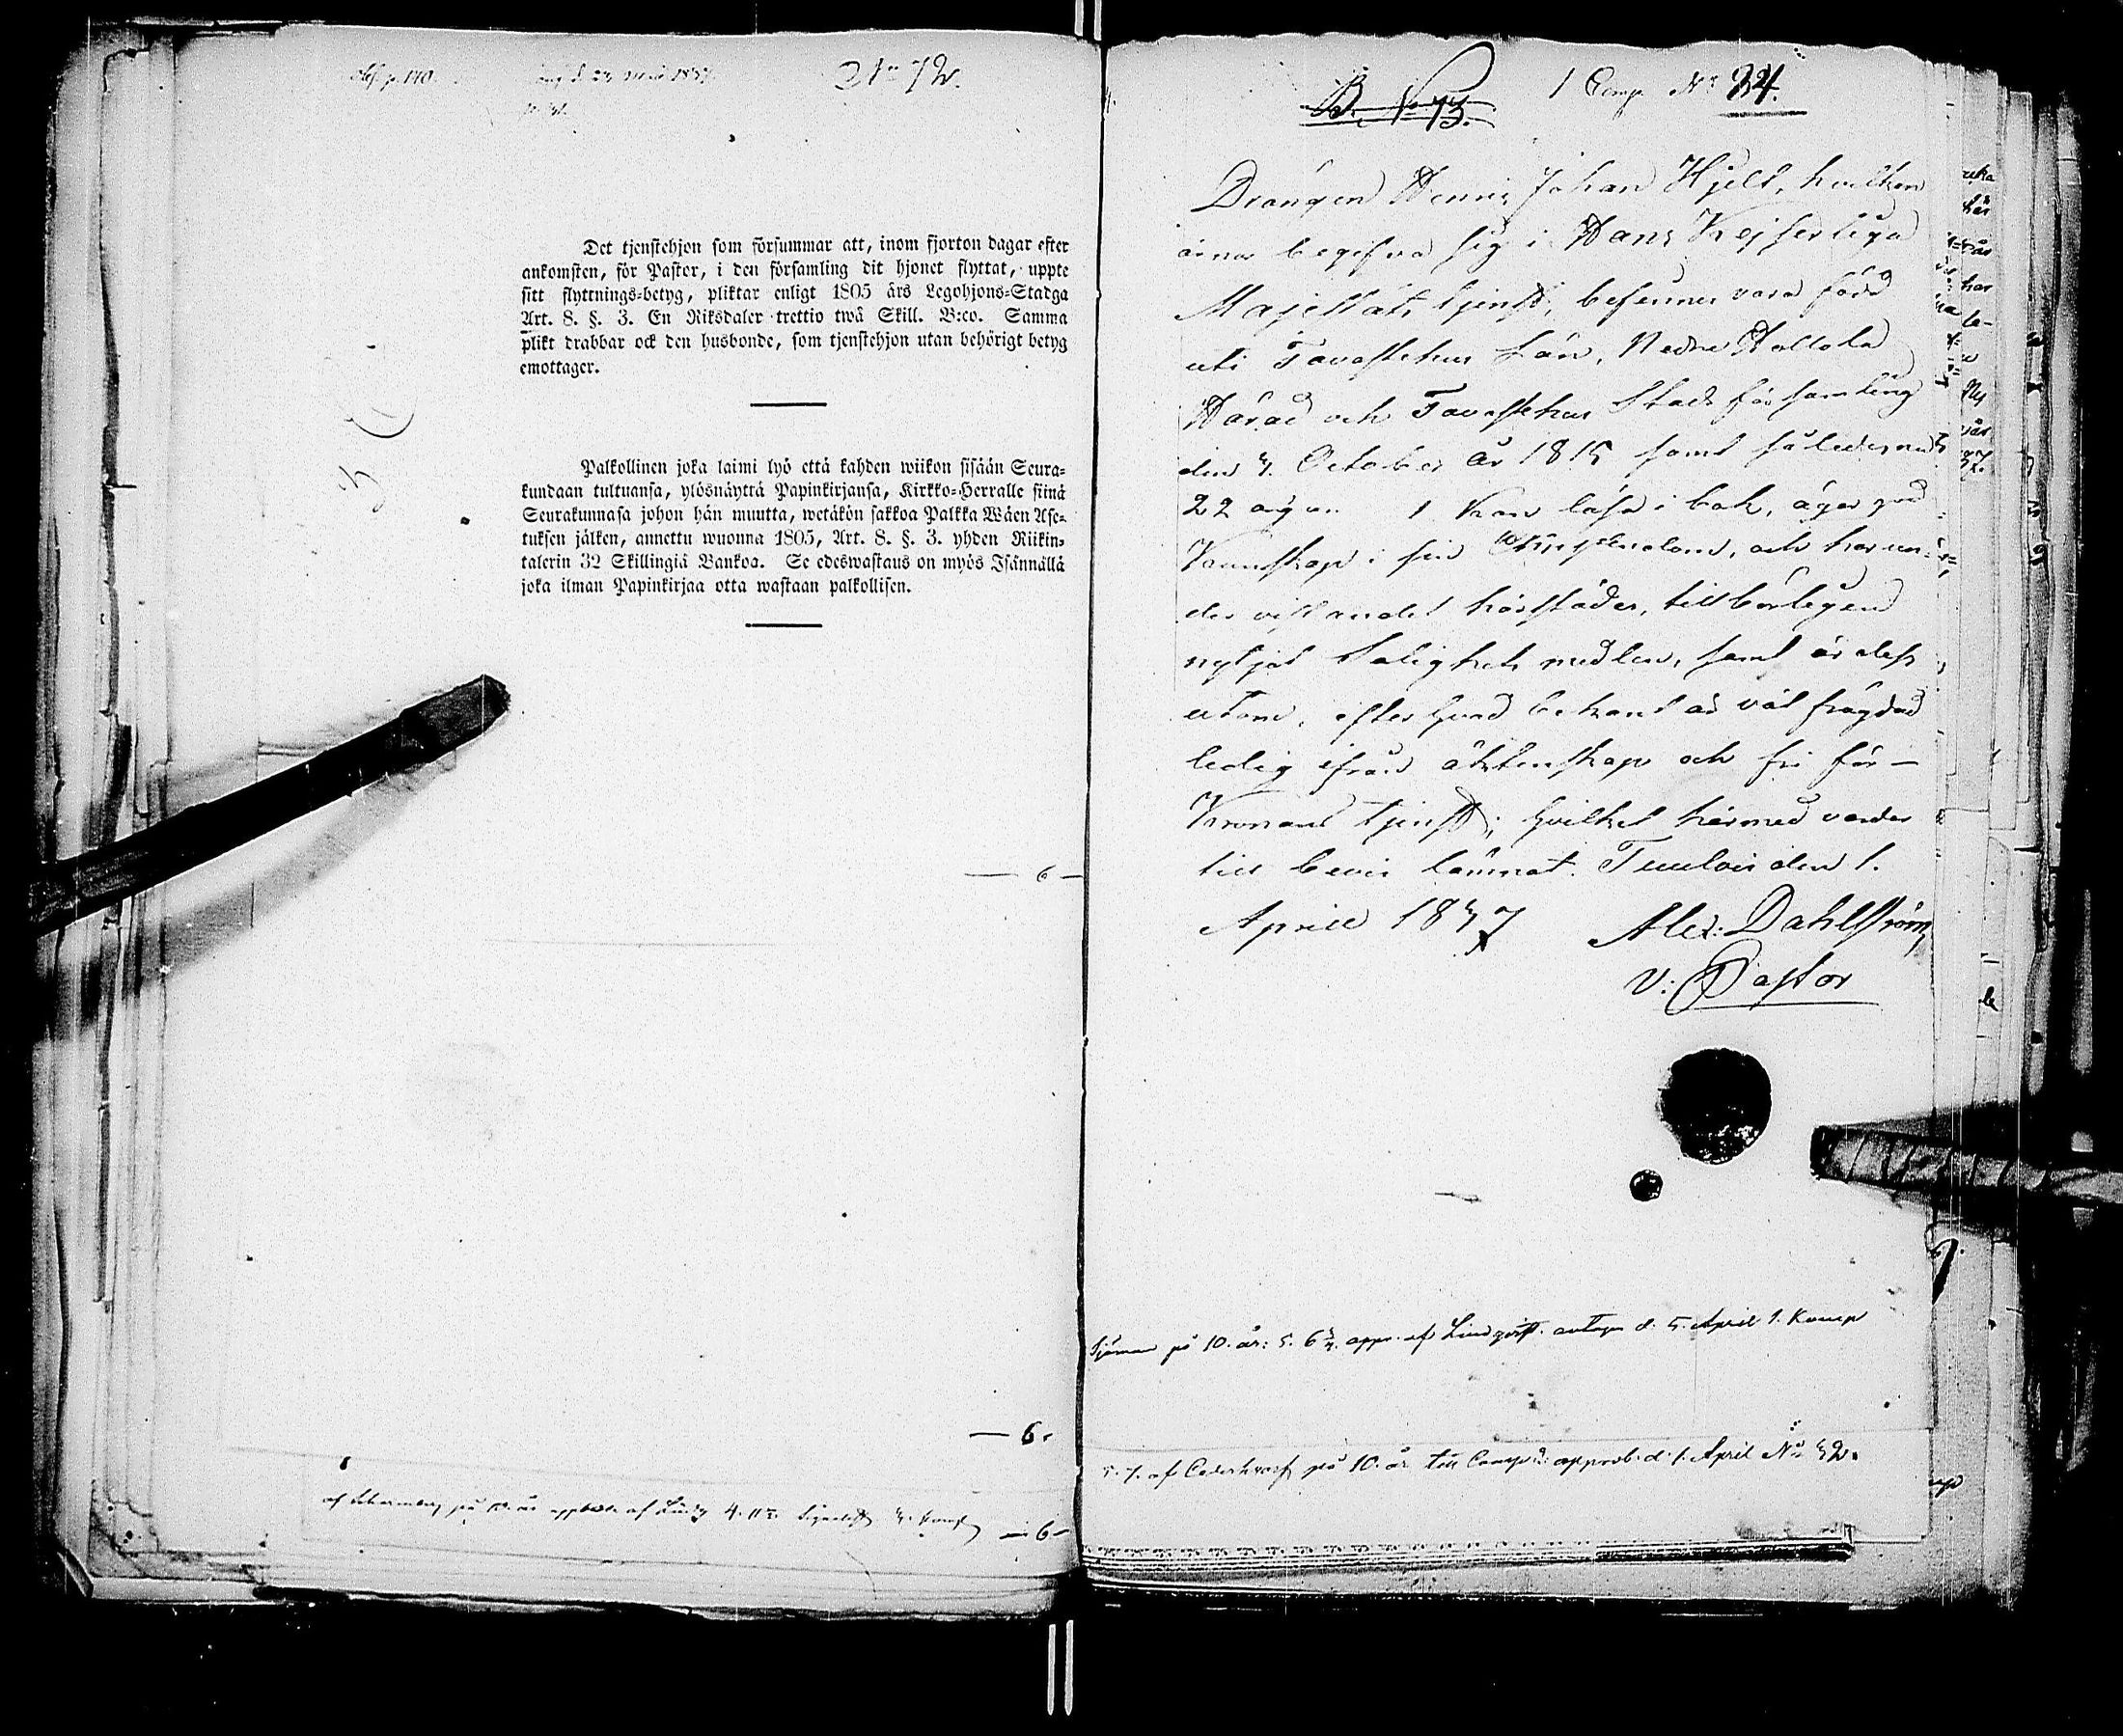 N:o 72.
Det tjenstehjon som försummar att, inom fjorton dagar efter
ankomsten, för Pastor, i den församling dit hjonet flyttat, uppte
sitt flyttnings-betyg, pliktar enligt 1805 års Legohjons-Stadga
Art. 8. §. 3. En Riksdaler trettio twå Skill. B:co. Samma
plikt drabbar ock den husbonde, som tjenstehjon utan behörigt betyg
emottager.
Palkollinen joka laimi lyö että kahden wiikon sisään Seura-
kundaan tultuansa, ylösnäyttä Papinkirjansa, Kirkko-Herralle siinä
Seurakunnasa johon hän muutta, wetäkön sakkoa Palkka Wäen Ase-
tuksen jälken, annettu wuonna 1805, Art. 8. §. 3. yhden Riikin-
talerin 32 Skillingiä Bankoa. Se edeswastaus on myös Isännällä
joka ilman Papinkirjaa otta wastaan palkollisen.
— 6 —
— 6.
på 10. år — 6 —
B. No 73.
1 Comp. No 34.
Drängen Henric Johan Hjelt, hvilken
ärnar begifva sig i Hans Kejserliga
Majestäts tjenst, befinnes vara född
uti Tavastehus Län, Nedre Hollola
Härad och Tavastehus Stads församling
den 4. October år 1815, samt således nu
22 år gn. Kan läsa i bok, äger god
Kunskap i sin Christendom, och har un-
der vistandet härstädes, tillbörligen
nytjat Salighets medlen, samt är dess
utom, efter hvad bekant är väl frägdad
ledig ifrån äktenskap och fri för
Kronans tjenst; hvilket härmed varder
till bevis lämnat. Tuulois den 1.
April 1837 Alex: Dahlström
V: Pastor
Sjöman på 10. år: 5. 6 3/4. appr. af Lindqvist. antagen d. 5. April 1. Komp
5. 7. af på 10. år till Comp: approb. d. 1. April No 32.